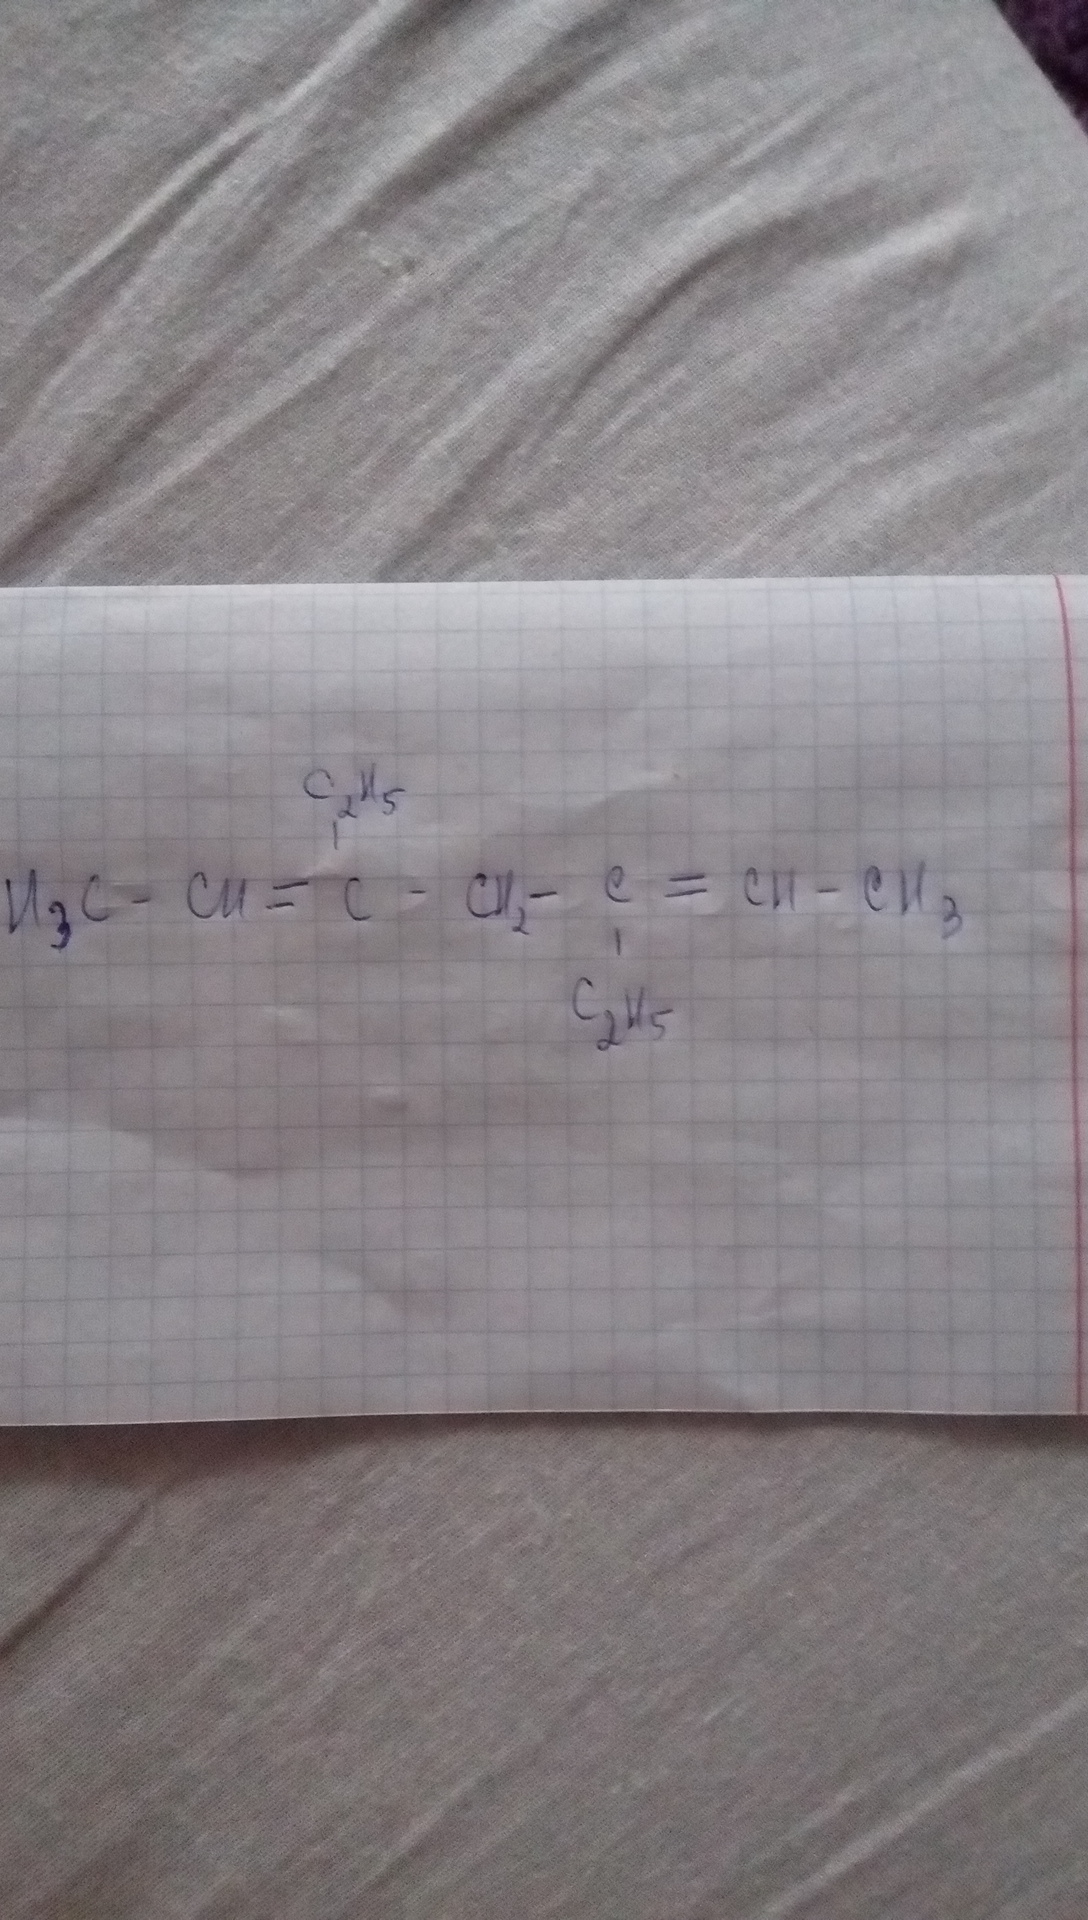 C₂H₅
H₃C - CH = C - CH₂ - C = CH - CH₃
C₂H₅